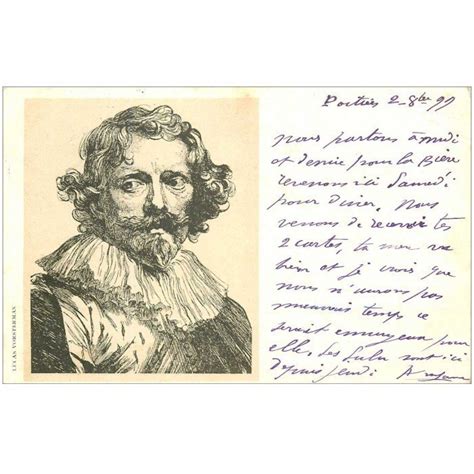 LUCAS VORSTERMAN
Poitiers 2-8bre 99
nous partons à midi
et demie pour la Bière
revenons ici Samedi
pour diner. Nous
venons de recevoir tes
2 cartes, la mer va
bien et je crois que
nous n'aurons pas
mauvais temps ce
serait ennuyeux pour
elle. Les Lulu sont ici
depuis jeudi